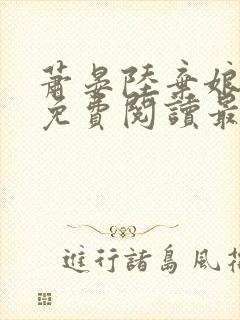 蕭晏陸棄娘
免費閱讀最
進行諸島風